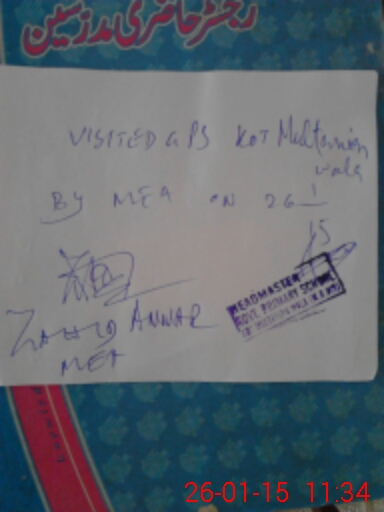 رجسٹر حاضری مدرسین
VISITED GPS KOT
wala
BY MEA ON 26 1
15
ZAHID ANWAR
MEA
HEADMASTER
GOVT. PRIMARY SCHOOL
26-01-15 11:34